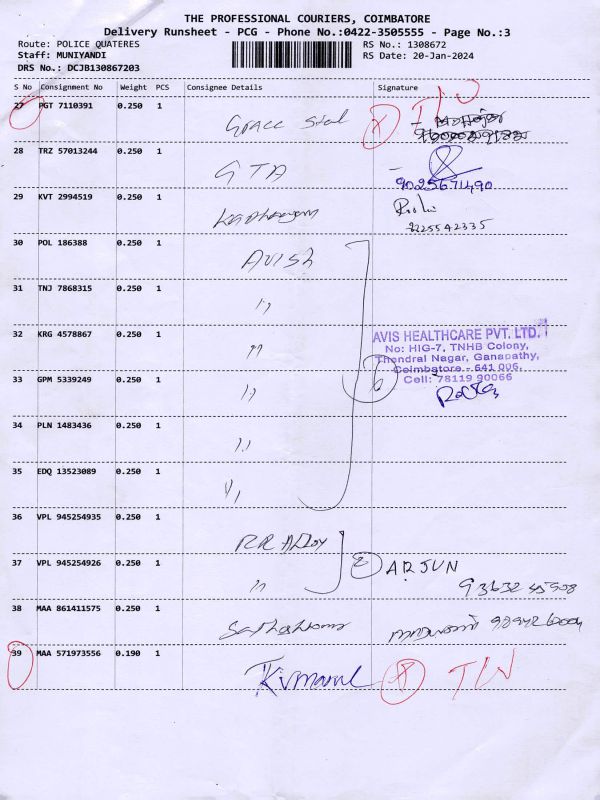 THE PROFESSIONAL COURIERS, COIMBATORE
Delivery Runsheet - PCG - Phone No.:0422-3505555 - Page No.:3
Route: POLICE QUATERES RS No.: 1308672
Staff: MUNIYANDI RS Date: 20-Jan-2024
DRS No.: DCJB130867203
S No Consignment No Weight PCS Consignee Details Signature
27 PGT 7110391 0.250 1
28 TRZ 57013244 0.250 1 GTA
9025671490
29 KVT 2994519 0.250 1
30 POL 186388 0.250 1 AVISh
31 TNJ 7868315 0.250 1 ,,
32 KRG 4578867 0.250 1 ,,
AVIS HEALTHCARE PVT. LTD.
No: HIG-7, TNHB Colony,
Thendral Nagar, Ganapathy,
Coimbatore - 641 006.
Cell: 78119 90066
33 GPM 5339249 0.250 1 ,,
6
34 PLN 1483436 0.250 1 ,,
35 EDQ 13523089 0.250 1 ,,
36 VPL 945254935 0.250 1 RR Alloy
37 VPL 945254926 0.250 1 ,, 2 ARJUN
38 MAA 861411575 0.250 1
39 MAA 571973556 0.190 1